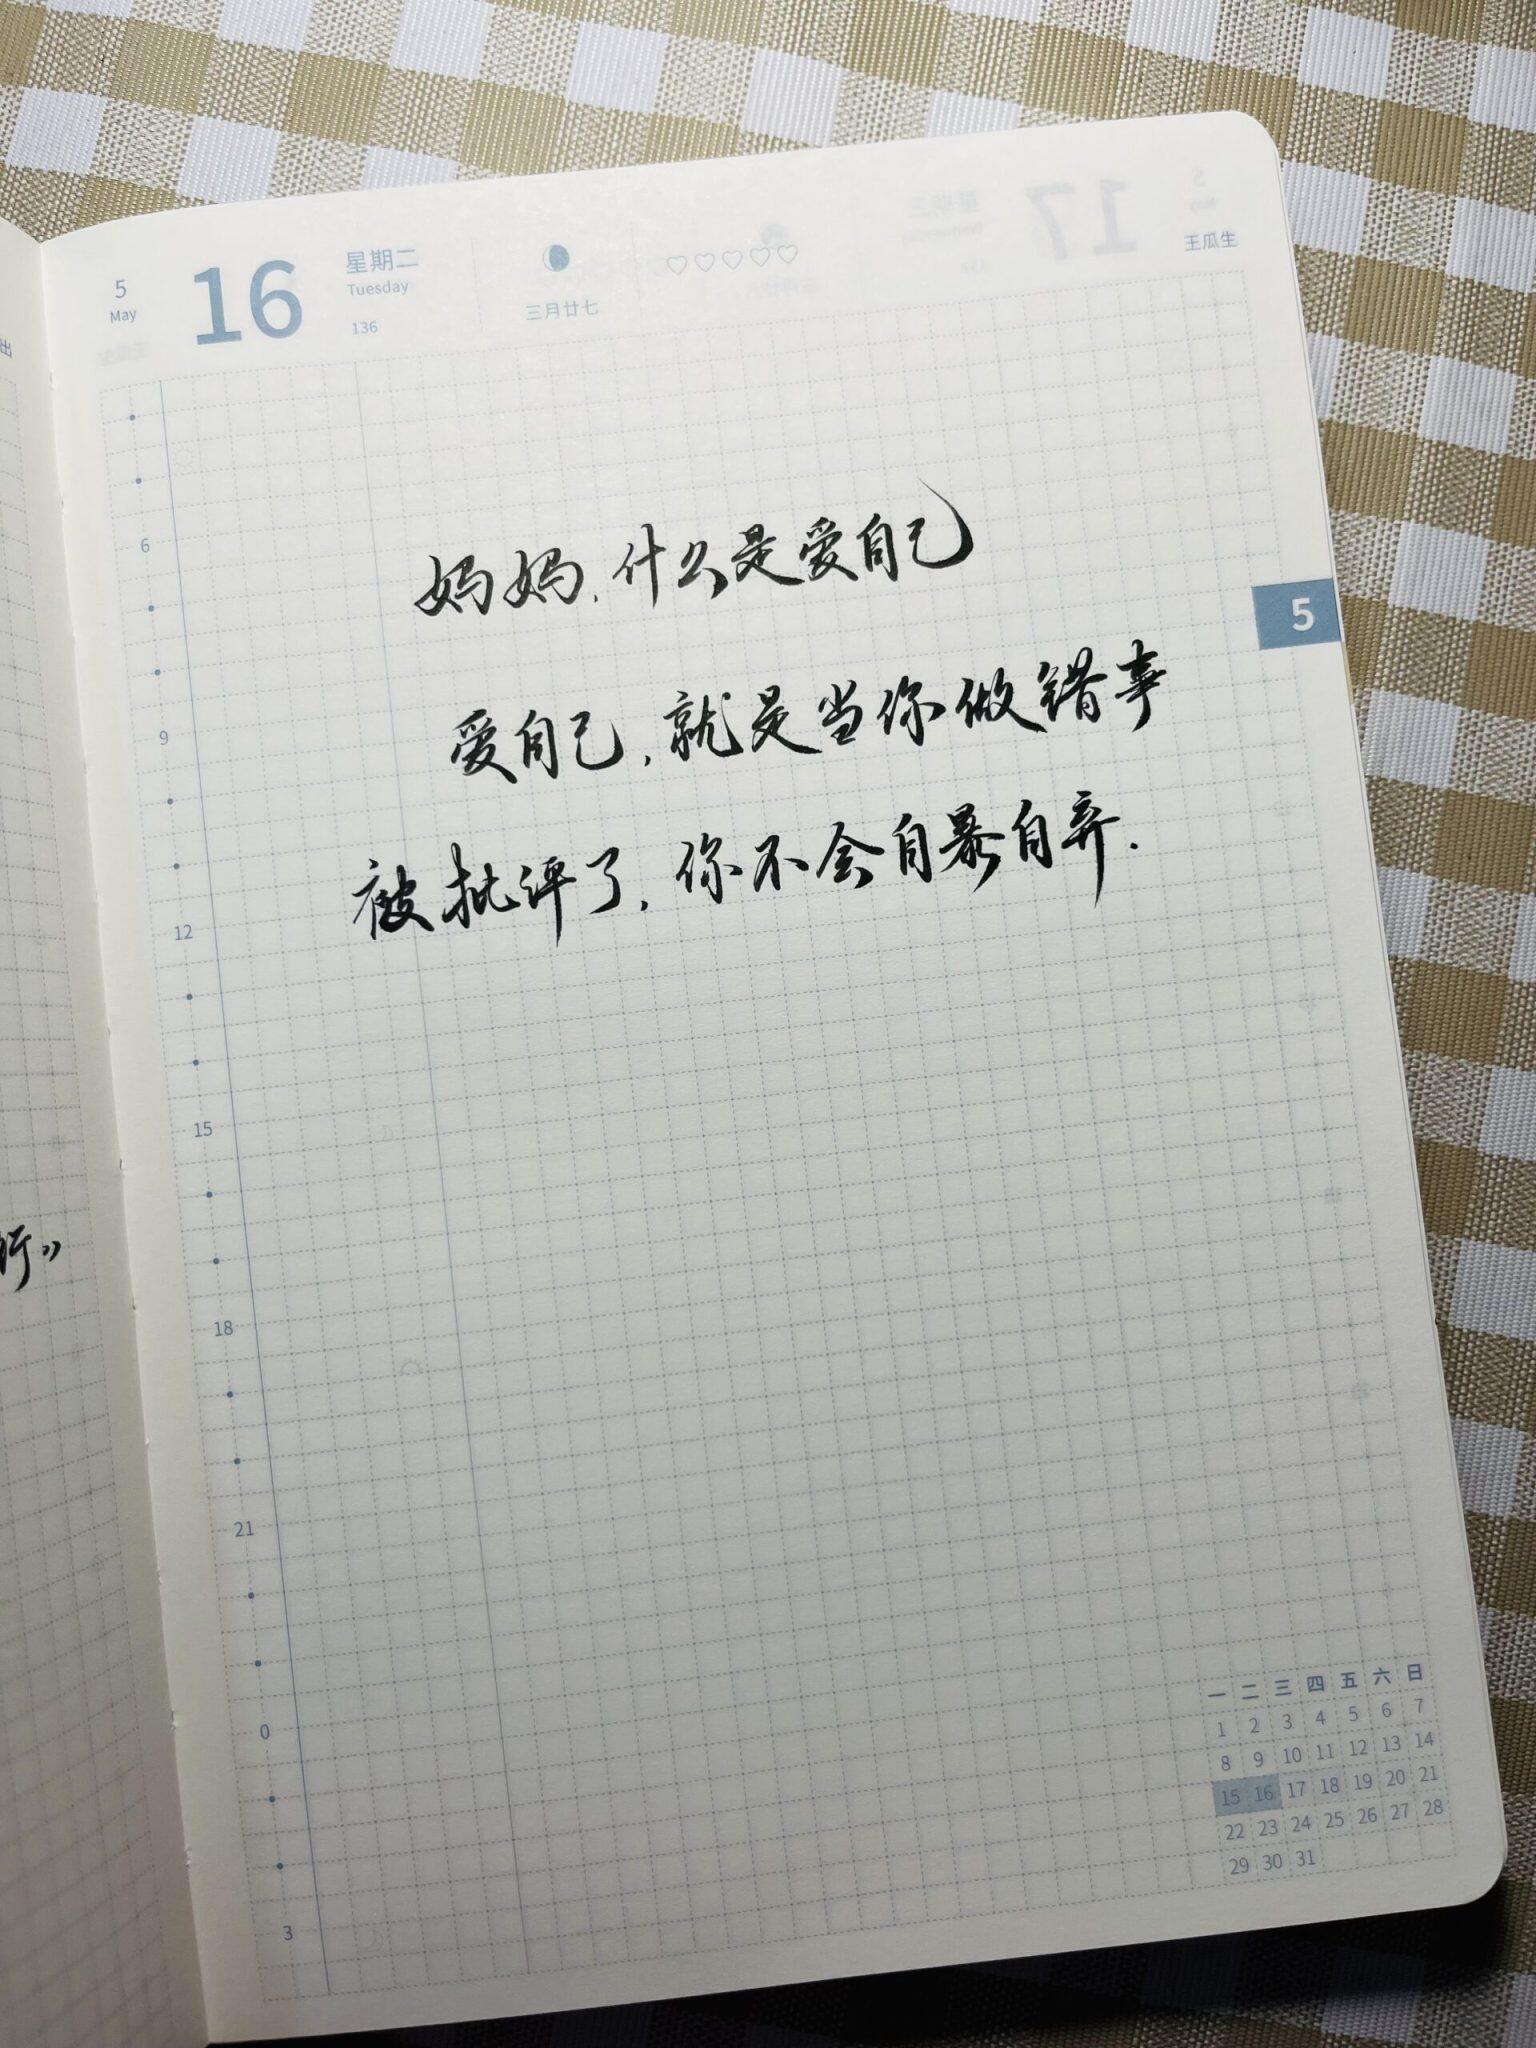 出
5
May
16
星期二
Tuesday
136
三月廿七
17
王瓜生
5
6
9
12
15
18
21
0
3
妈妈，什么是爱自己
爱自己，就是当你做错事
被批评了，你不会自暴自弃.
行》
一 二 三 四 五 六 日
1 2 3 4 5 6 7
8 9 10 11 12 13 14
15 16 17 18 19 20 21
22 23 24 25 26 27 28
29 30 31